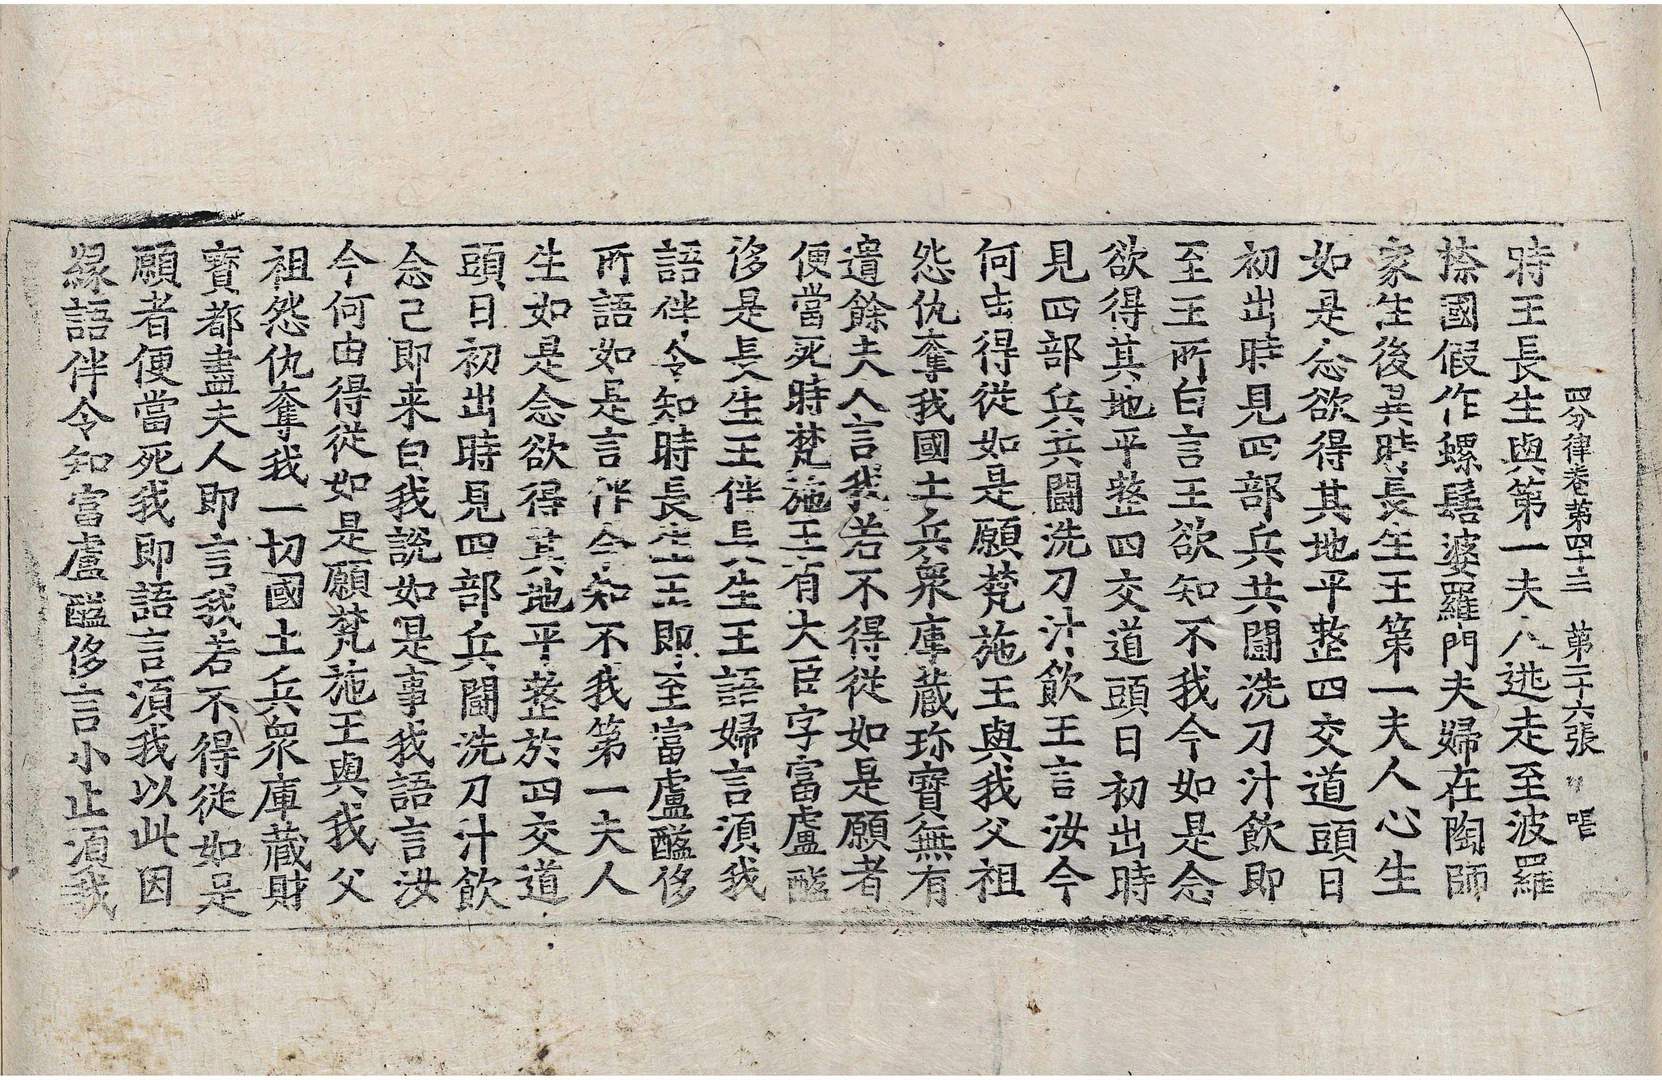 四分律卷第四十三 第二十六張
時王長生與第一夫人逃走至波羅
㮈國假作螺髻婆羅門夫婦在陶師
家生後異時長生王第一夫人心生
如是念欲得其地平整四交道頭日
初出時見四部兵共鬪洗刀汁飲即
至王所白言王欲知不我今如是念
欲得其地平整四交道頭日初出時
見四部兵共鬪洗刀汁飲王言汝今
何由得從如是願梵施王與我父祖
怨仇奪我國土兵衆庫蔵珎寶無有
遺餘夫人言我若不得從如是願者
便當死時梵施王有大臣字富盧醯
侈是長生王伴長生王語婦言湏我
語伴令知時長生王即至富盧醯侈
所語如是言伴今知不我第一夫人
生如是念欲得其地平整於四交道
頭日初出時見四部兵鬪洗刀汁飲
念已即来白我說如是事我語言汝
今何由得從如是願梵施王與我父
祖怨仇奪我一切國土兵衆庫蔵財
寶都盡夫人即言我若不得從如是
願者便當死我即語言湏我以此因
緣語伴令知富盧醯侈言小止湏我